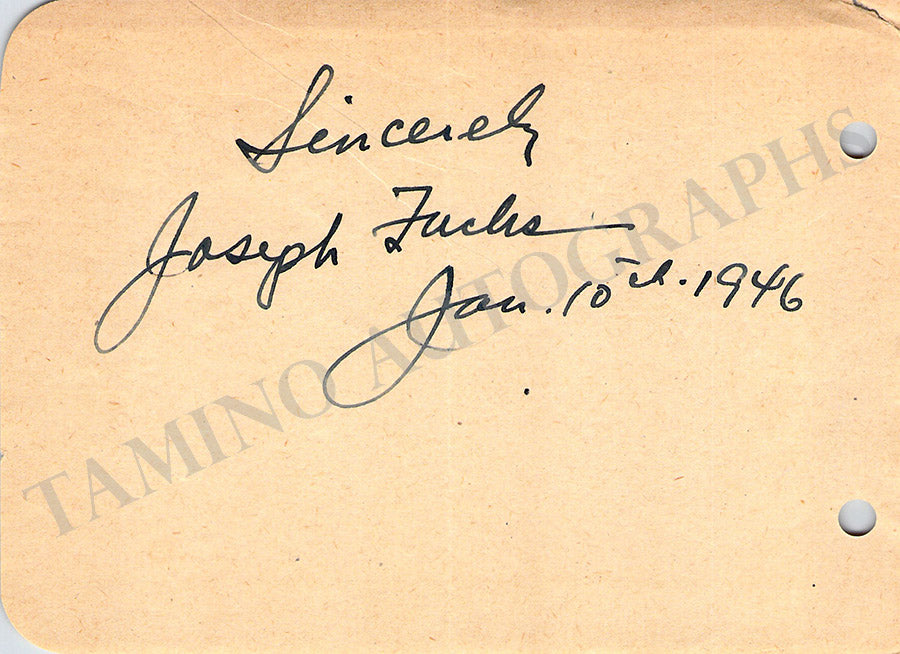 Sincerely
Joseph Fuchs
Jan. 10th. 1946
TAMINO AUTOGRAPHS